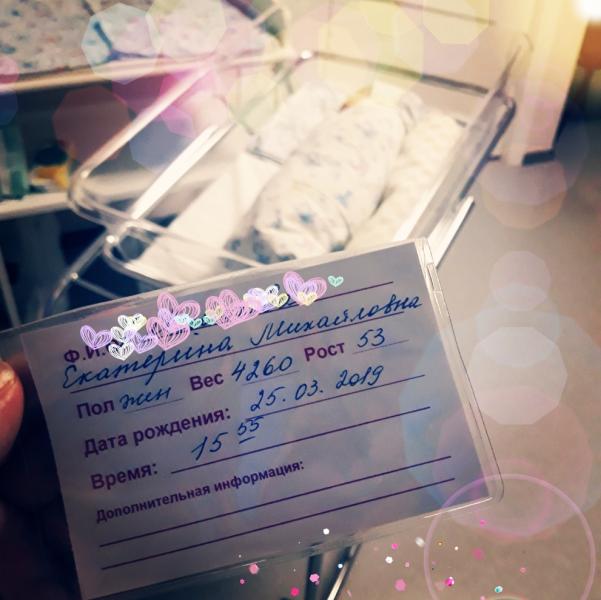 Ф.И.
Екатерина Михайловна
Пол жен Вес 4260 Рост 53
Дата рождения: 25.03.2019
Время: 15 55
Дополнительная информация: